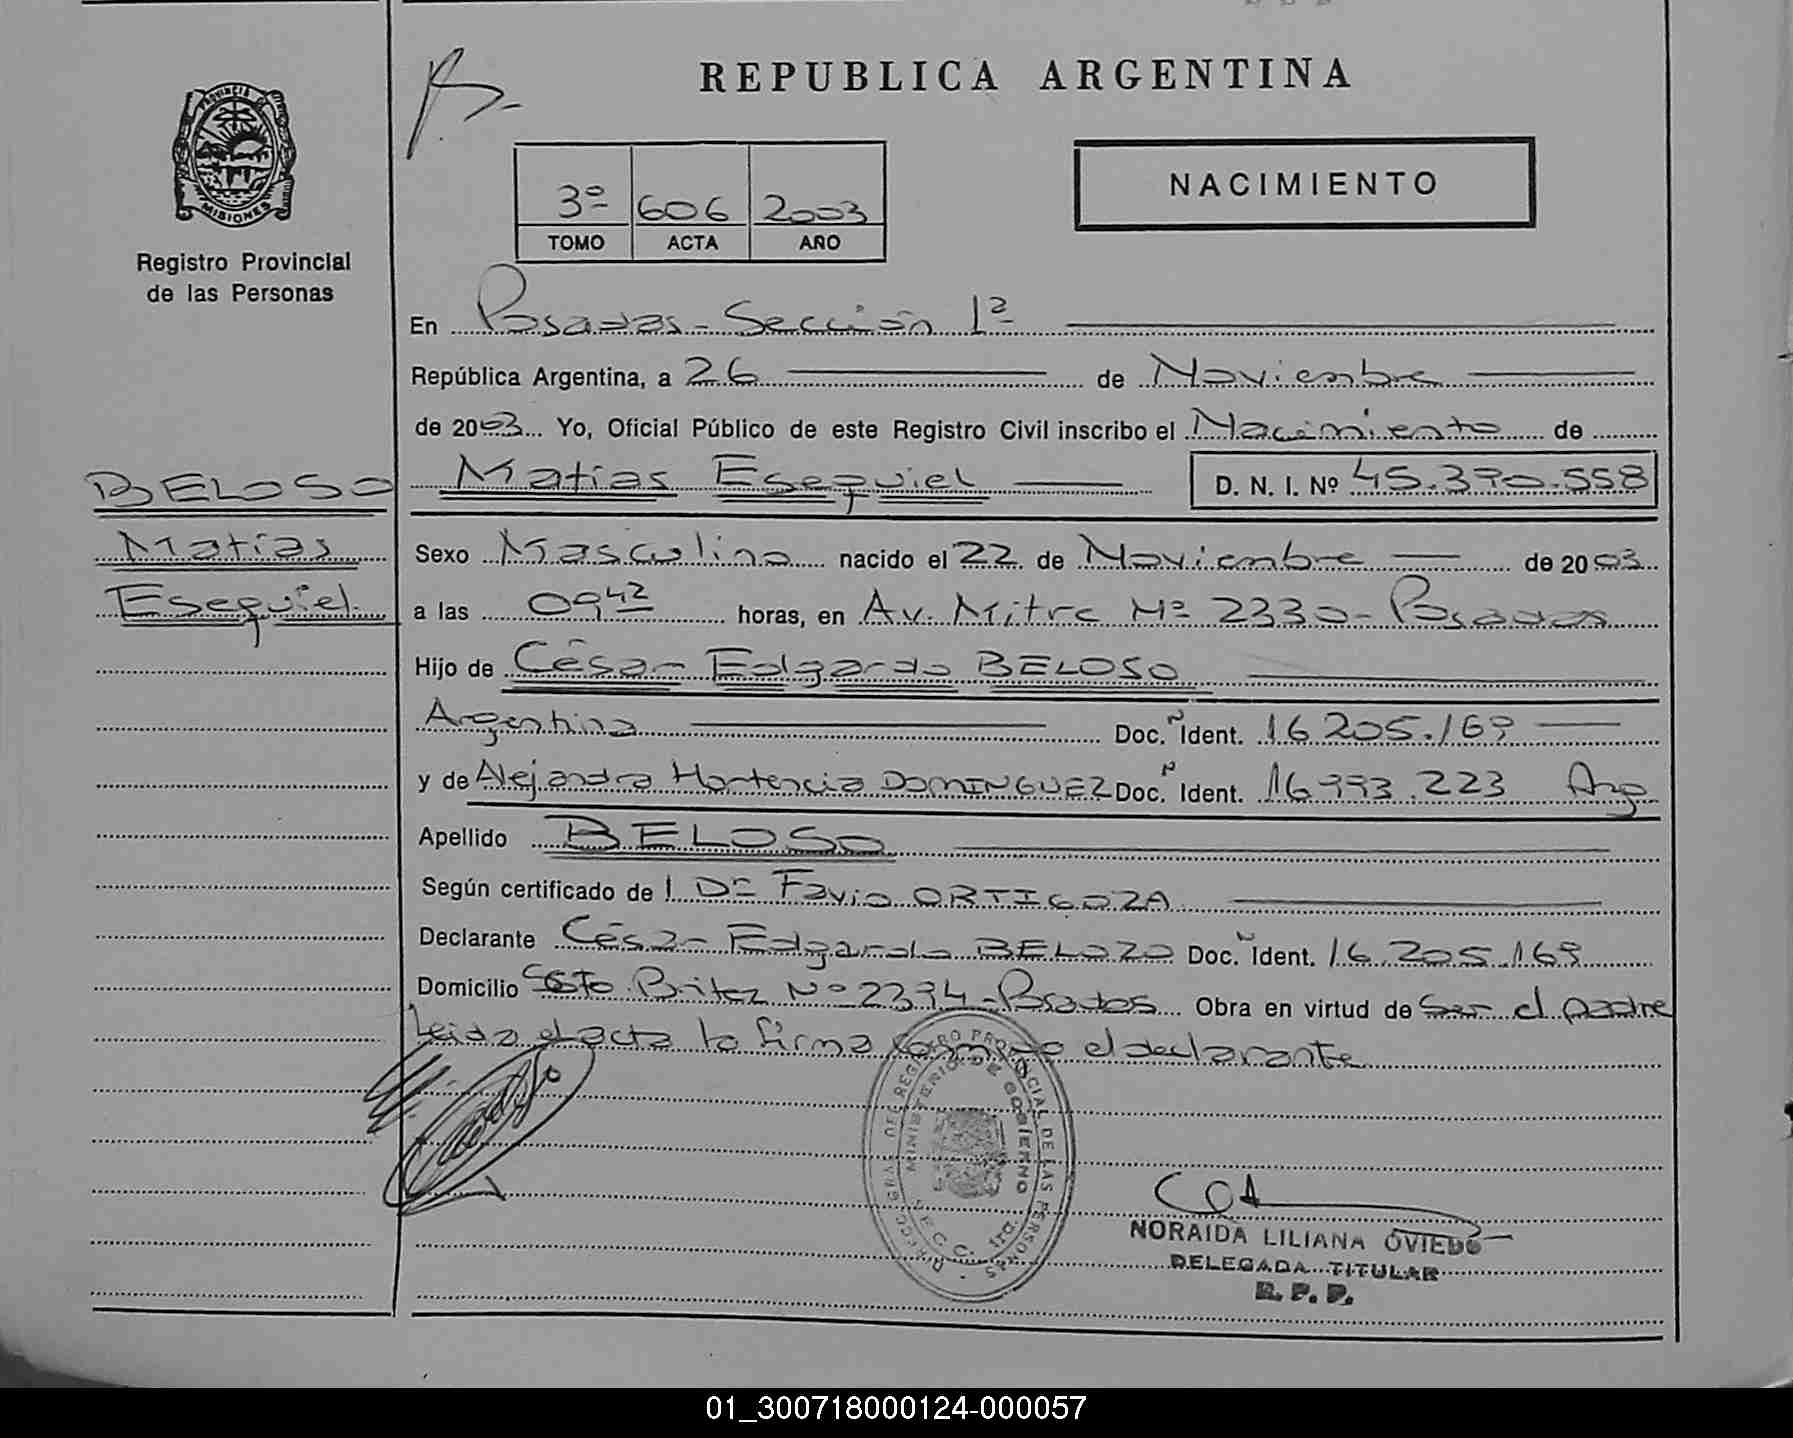 REPUBLICA ARGENTINA
PROVINCIA DE
MISIONES
Registro Provincial
de las Personas
3º 606 2003
TOMO ACTA AÑO
NACIMIENTO
En Posadas - Sección 1ª
República Argentina, a 26 de Noviembre
de 2003 Yo, Oficial Público de este Registro Civil inscribo el Nacimiento de
BELOSO
Matías
Esequiel
Matías Esequiel D. N. I. Nº 45.390.558
Sexo Masculino nacido el 22 de Noviembre de 2003
a las 09 42 horas, en Av. Mitre Nº 2330 - Posadas
Hijo de César Edgardo BELOSO
Argentina Doc. Ident. 16.205.169
y de Alejandra Hortencia DOMINGUEZ Doc. Ident. 16.993.223 Arg
Apellido BELOSO
Según certificado de l Dr Favio ORTIGOZA
Declarante César Edgardo BELOZO Doc. Ident. 16.205.169
Domicilio Britez Nº 2394 - Posadas Obra en virtud de Ser el padre
Leida el acta la firma el declarante
DIRECC. GRAL. DEL REGISTRO PROVINCIAL DE LAS PERSONAS
MINISTERIO DE GOBIERNO
SECC. 1ra.
NORAIDA LILIANA OVIEDO
DELEGADA TITULAR
R. P. P.
01_300718000124-000057